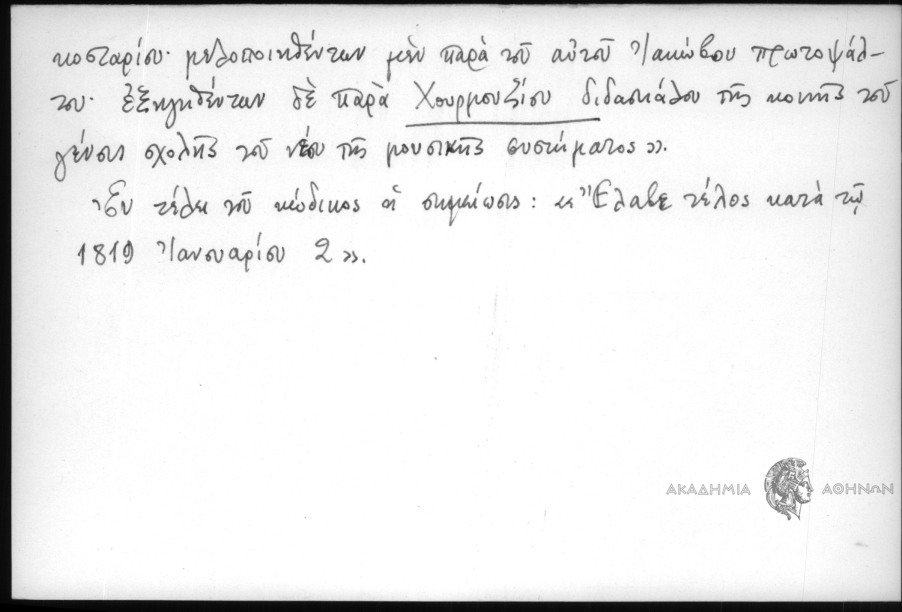 κοσταρίου· μελοποιηθέντων μὲν παρὰ τοῦ αὐτοῦ Ἰακώβου πρωτοψάλ-
του· ἐξηγηθέντων δὲ παρὰ Χουρμουζίου διδασκάλου τῆς κοινῆς τοῦ
γένους σχολῆς τοῦ νέου τῆς μουσικῆς συστήματος».
Ἐν τέλει τοῦ κώδικος ἡ σημείωσις: «Ἔλαβε τέλος κατὰ τῷ
1819 Ἰανουαρίου 2».
ΑΚΑΔΗΜΙΑ ΑΘΗΝΩΝ